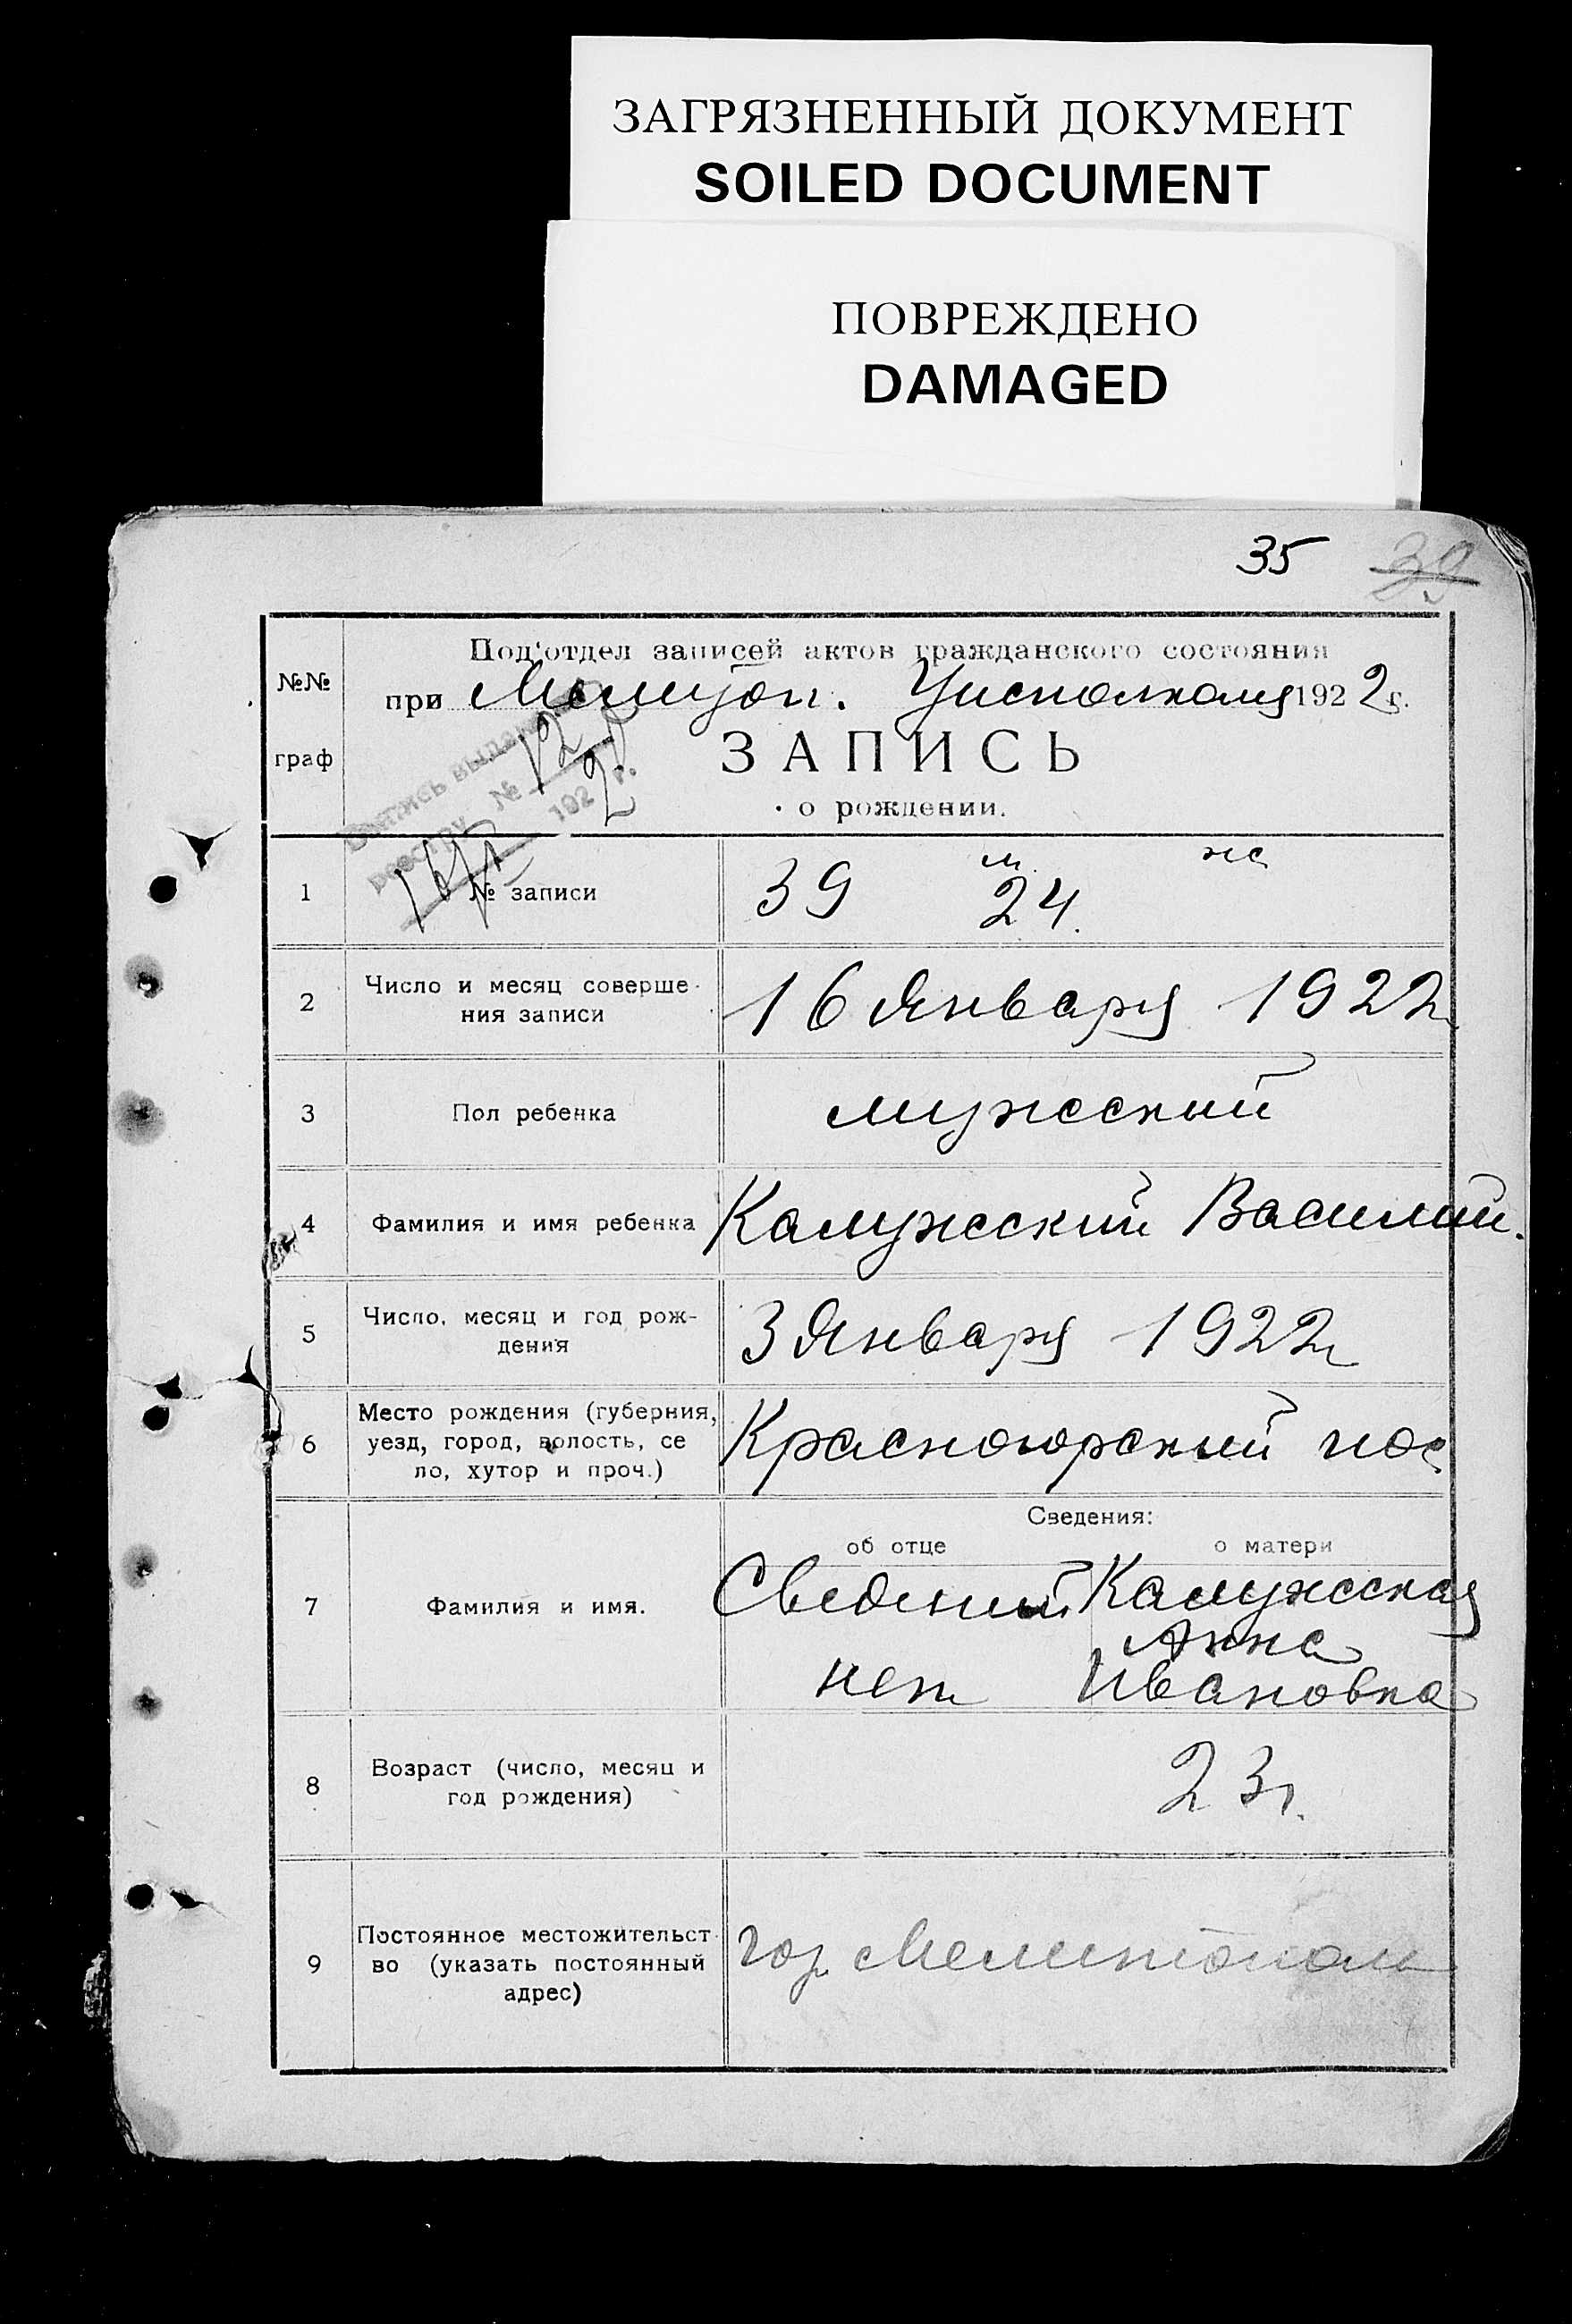 ЗАГРЯЗНЕННЫЙ ДОКУМЕНТ
SOILED DOCUMENT
ПОВРЕЖДЕНО
DAMAGED
35 39
№№ граф
Под'отдел записей актов гражданского состояния
при Мелитоп. Уисполкома 1922 г.
ЗАПИСЬ
о рождении.
реестру №
192 2 г.
1 № записи 39 м. 24. ж
2 Число и месяц соверше-
ния записи 16 Января 1922
3 Пол ребенка мужеский
4 Фамилия и имя ребенка Калужский Василий.
5 Число, месяц и год рож-
дения 3 Января 1922
6 Место рождения (губерния,
уезд, город, волость, се
ло, хутор и проч.)
Сведения:
об отце о матери
7 Фамилия и имя. Сведений нет
Калужская
Анна
Ивановна
8 Возраст (число, месяц и
год рождения) 23 г.
9 Постоянное местожительст
во (указать постоянный
адрес) гор. Мелитополь